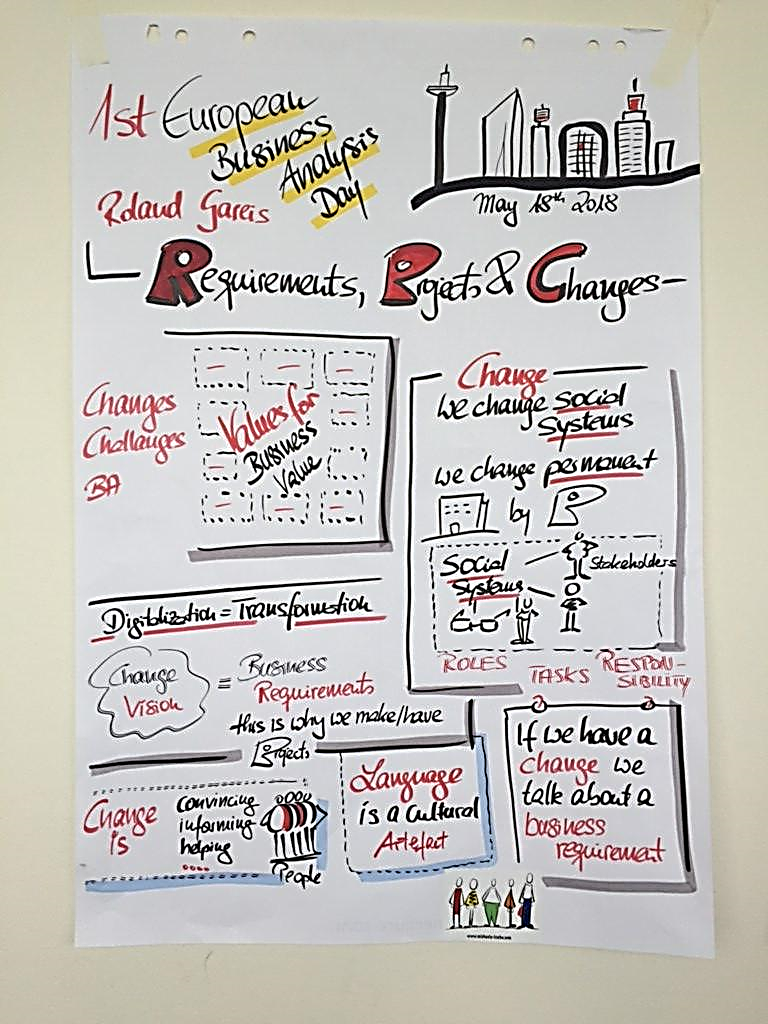 1st European
Business
Analysis
Day
May 18th 2018
Roland Gareis
Requirements, Projects & Changes
Changes
Challanges
BA
Values for
Business
Value
Change
We change social
Systems
we change permanent
by P
Social
Systems
Stakeholders
ROLES TASKS RESPON-
SIBILITY
Digitalization = Transformation
Change
Vision
≡ Business
Requirements
this is why we make/have
Projects
Change
is
convincing
informing
helping
People
Language
is a cultural
Artefact
If we have a
change we
talk about a
business
requirement